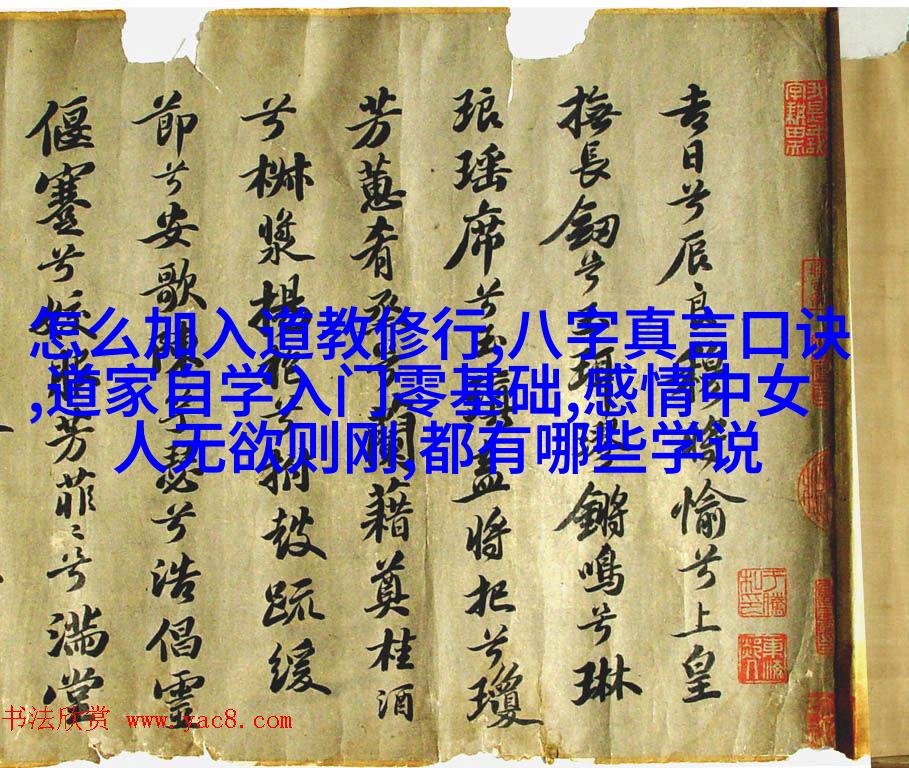 吉日兮辰良穆將愉兮上皇
撫長劒兮玉珥璆鏘鳴兮琳
琅瑤席兮玉瑱盍將把兮瓊
芳蕙肴烝兮蘭藉奠桂酒
兮椒漿揚枹兮拊鼓疏緩
節兮安歌陳竽瑟兮浩倡靈
偃蹇兮姣服芳菲〻兮滿堂
怎么加入道教修行,八字真言口诀
,道家自学入门零基础,感情中女
人无欲则刚,都有哪些学说
书法欣赏 www.yac8.com